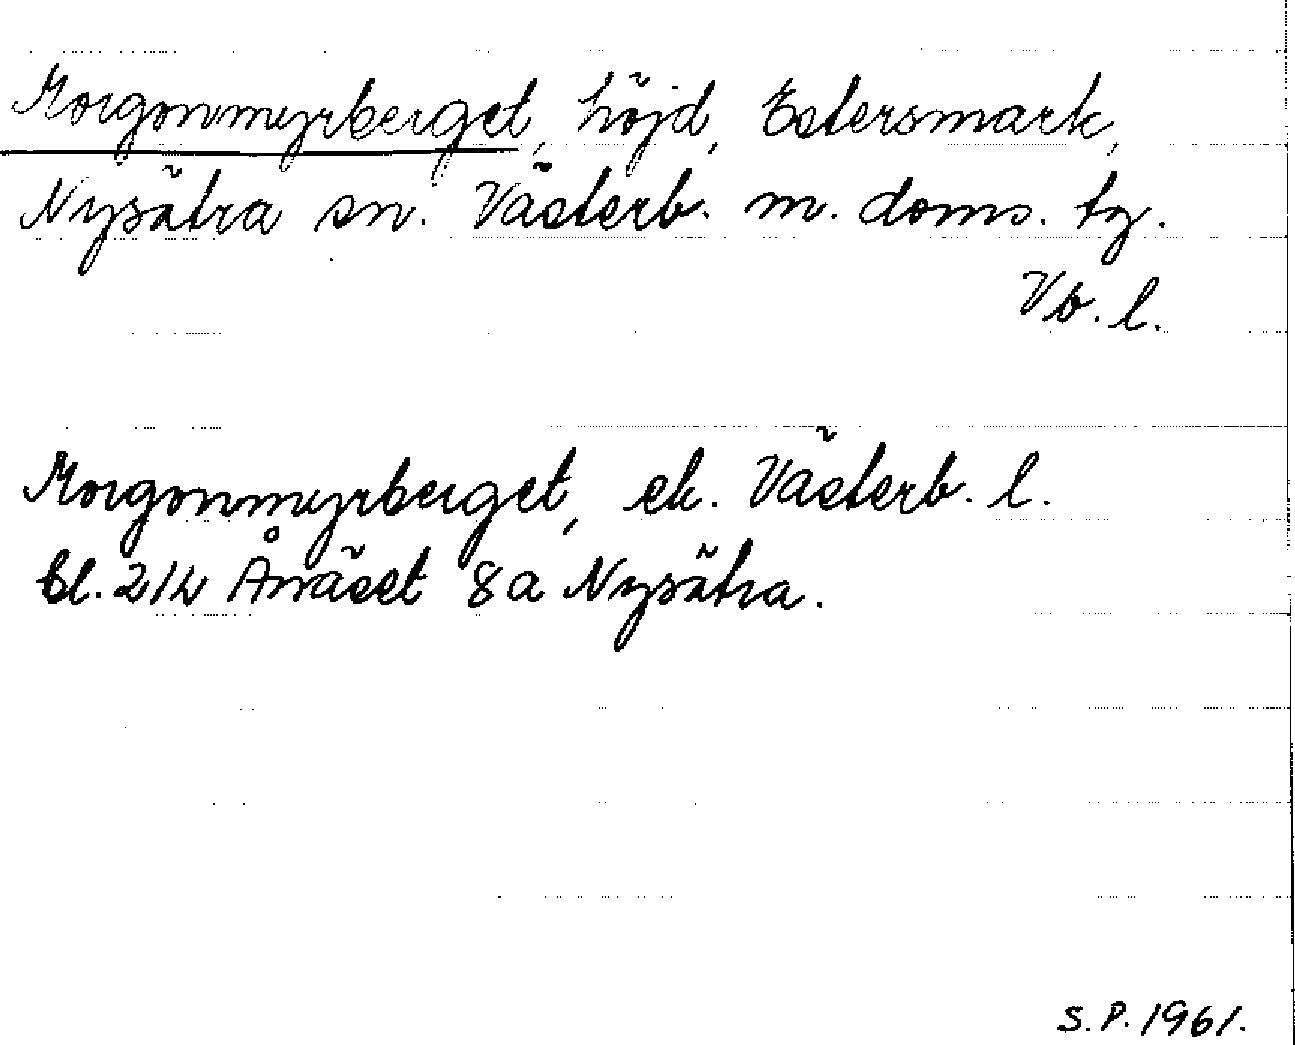 Morgonmyrberget, höjd, Estersmark,
Nysätra sn. Västerb. m. doms. tg.
Vb. l.
Morgonmyrberget, ek. Västerb. l.
bl. 21k Ånäset 8a Nysätra.
S.P. 1961.